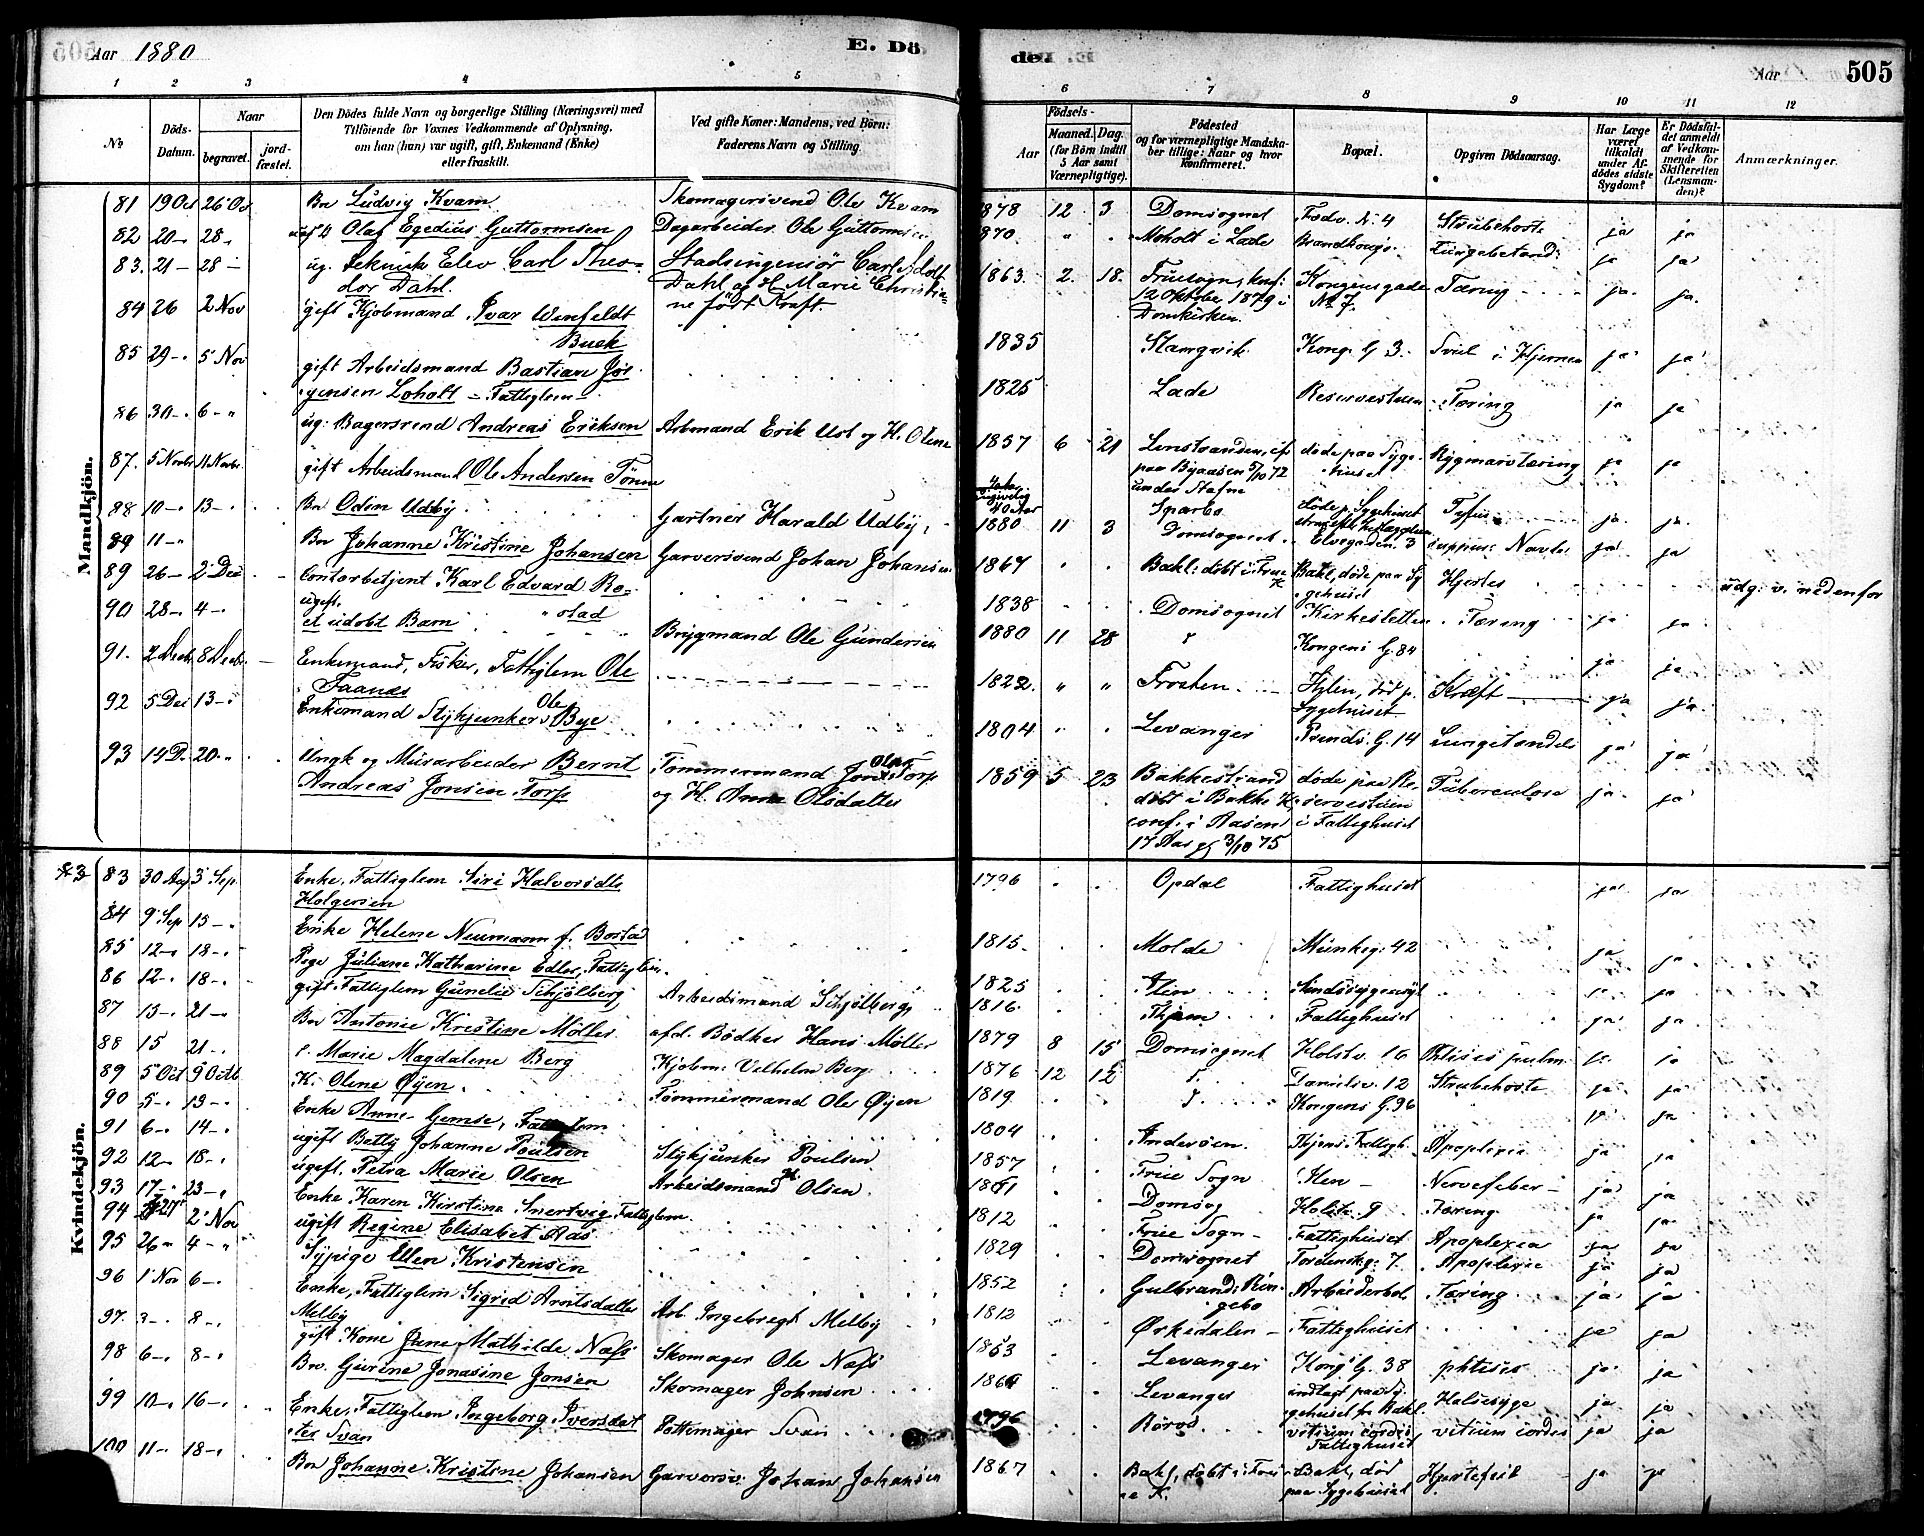 Aar 1880 E. Dö-
den E. Aar 505
1 2 3 4 5 6 7 8 9 10 11 12
No Döds-Datum. Naar begravet. jordfæstet.
Den Dödes fulde Navn og borgerlige Stilling (Næringsvei) med
Tilföiende for Voxnes Vedkommende af Oplysning,
om han (hun) var ugift, gift, Enkemand (Enke)
eller fraskilt.
Ved gifte Koner: Mandens, ved Börn:
Faderens Navn og Stilling
Födsels- Aar Maaned. Dag. (for Börn indtil 5 Aar samt Værnepligtige).
Födested og for værnepligtige Mandskaber tillige: Naar og hvor konfirmeret.
Bopæl. Opgiven Dödsaarsag.
Har Læge været tilkaldt under Afdödes sidste Sygdom?
Er Dödsfaldet anmeldt af Vedkommende for Skifteretten (Lensmanden)?
Anmærkninger.
Mandkjön.
81 19 Oct 26 Oc Bn Ludvig Kvam Skomagersvend Ole Kvam 1878 12 3 Domsognet Fodv. N. 4 Strubehoste ja ja
82 20 28 Olaf Egedius Guttormsen Dagarbeider Ole Guttormsen 1870 Moholt i Lade ja ja
83. 21 28 ug. Teknisk Elev Carl Theo- Stadsingeniör Carl Adolf 1863 2. 18. Fruesogn, konf: Kongensgade Tæring ja. ja.
dor Dahl. Dahl og H. Marie Christia- 12 Oktober 1879 i No 7.
ne född Kraft. Domkirken.
84 26 2 Nov gift Kjöbmand Ivar Wenfeldt 1835 Stamgvik Kong. G 3. Sviel i Hjernen ja ja
Buck
85 29 5 Nov gift Arbeidsmand Bastian Jör- 1825 Lade Reservestuen Tæring ja ja
gensen Loholt - Fattiglem -
86 30 6 ug. Bagersvend Andreas Eriksen Arbmand Erik Ust og H. Olene 1857 6 21 döde paa Syge- Rygmarvtæring ja ja
paa Byaasen 5/10 72 huset
87. 5 Novbr 11 Novbr. gift Arbeidsmand Ole Andersen Tönne 40 Aar Sparbo döde p. Sygehuset Tyfus ja. ja.
88 10 13 Bn Odin Udby Gartner Harald Udby 1880 11 3 Domsognet Elvegaden 3 ja ja
89 11 Bn Johanne Kristine Johansen Garversvend Johan Johansen 1867 Bakl: döbt i Frue Bakl, döde paa Sy- Hjertes udg: v. nedenfor
K gehuset
89 26 2 Dec Contorbetjent Karl Edvard Ro- 1838 Domsognet Kirkesletten Tæring ja ja
ugift. stad
90 28 4 et udöbt Barn Brygmand Ole Gundersen 1880 11 28 Kongens G. 84 ja ja
91. 2 Decbr 8 Decbr. Enkemand, Fisker, Fattiglem Ole 1822 " " Frosten Hylen, död p. Kræft ja ja.
Faanes Sygehuset
92 5 Dec 13 Enkemand Stykjunker Ole Bye 1804 Levanger G. 14 ja ja
93 14 D. 20 Ungk og Murarbeider Bernt Tömmermand Jon Olsen Torp 1859 5 23 Bakkestrand döde paa Re- Tuberculose ja ja
Andreas Jonsen Torp og H. Anne Olsdatter döbt i Bakke K. servestuen
conf. i Aasen i Fattighuset
17 Aar g 3/10 75
Kvindekjön.
83 30 Aug 3 Sep Enke, Fattiglem Siri Halvorsdtr 1796 Opdal Fattighuset ja ja
Holgersen
84 9 Sep 15 Enke Helene Neumann f. Borstad 1815 Molde Munkeg: 42 ja ja
85 12 18 Pige Juliane Katharine Edler, Fattiglem 1825 ja
86 12 18 gift Fattiglem Gunelie Schjölberg Arbeidsmand Schjölberg 1816 Fattighuset ja ja
87 13 21 Bn Antonie Kristine Möller afd. Bödker Hans Möller 1879 8 15 Domsognet Holstv. 16 Phtisis pulm. ja ja
88 15 21 s. Marie Magdalene Berg Kjöbm: Vilhelm Berg 1876 12 12 Daniels v. 12 Strubehoste ja ja
89 5 Oct 9 Octb K. Olene Öyen Tömmermand Ole Öyen 1819 Kongens G. 96 ja ja
90 5 13 Enke Anne Gemse, Fattiglem 1804 Fattigh. Apoplexie ja ja
91 6 14 ugift Betty Johanne Poulsen Stykjunker Poulsen 1857 Frue Sogn Ilen Nervefeber ja ja
92 12 18 ugift. Petra Marie Olsen Arbeidsmand Olsen 1861 Domsog Holstv. 9 Tæring ja ja
93 17 23 Enke Karen Kirstine Snertvig Fattiglem 1812 Frue Sogn Fattighuset Apoplexia ja ja
94 27 2 Nov ugift Regine Elisabet Aas 1829 Domsognet Tordensk.g. 7. Apoplexie ja ja
95 26 4 Sypige Ellen Kristensen 1852 Gulbrandsd. Rin- Arbeiderbol. Tæring ja ja
gebo
96 1 Nov 6 Enke, Fattiglem Sigrid Arntsdatter Arb. Ingebregt Melby 1812 Örkedalen Fattighuset ja ja
Melby
97 3 8 gift Kone Jane Mathilde Næss Skomager Ole Næss 1853 Levanger Kong. G. 38 phtisis ja ja
98 6 8 Bn. Gurine Jonasine Jonsen Skomager Johnsen Levanger indlagt paa Sy- Halsesyge ja ja
gehuset fr Bakl.
99 10 16 Enke, Fattiglem Ingeborg Iversdat- Pottemager Svan 1796 Börsö vitium cordis ja ja
ter Svan Fattighuset
100 11 18 Bn Johanne Kristine Johansen Garversv. Johan Johansen 1867 Bakl, döbt i Fru- Bakl, död Hjertefeil ja ja
e K. paa Sygehuset